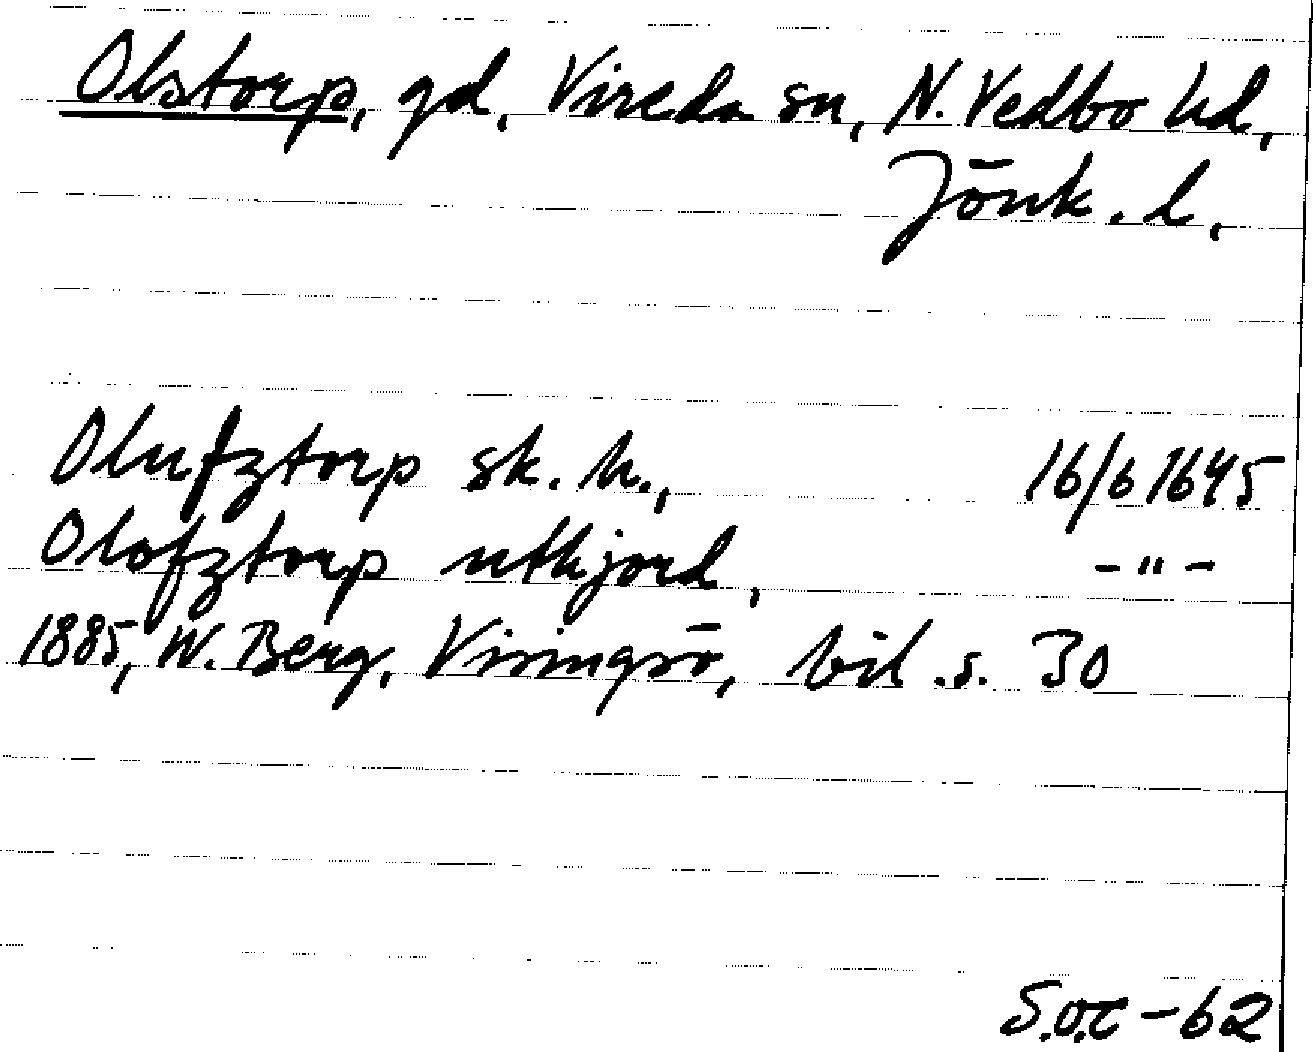 Olstorp, gd, Vireda sn, N. Vedbo hd,
Jönk. l.,
Olufztorp sk. h., 16/6 1645
Olofztorp utkjord, -"-
1885, W. Berg, Visingsö, bil. s. 30
S.O.C -62